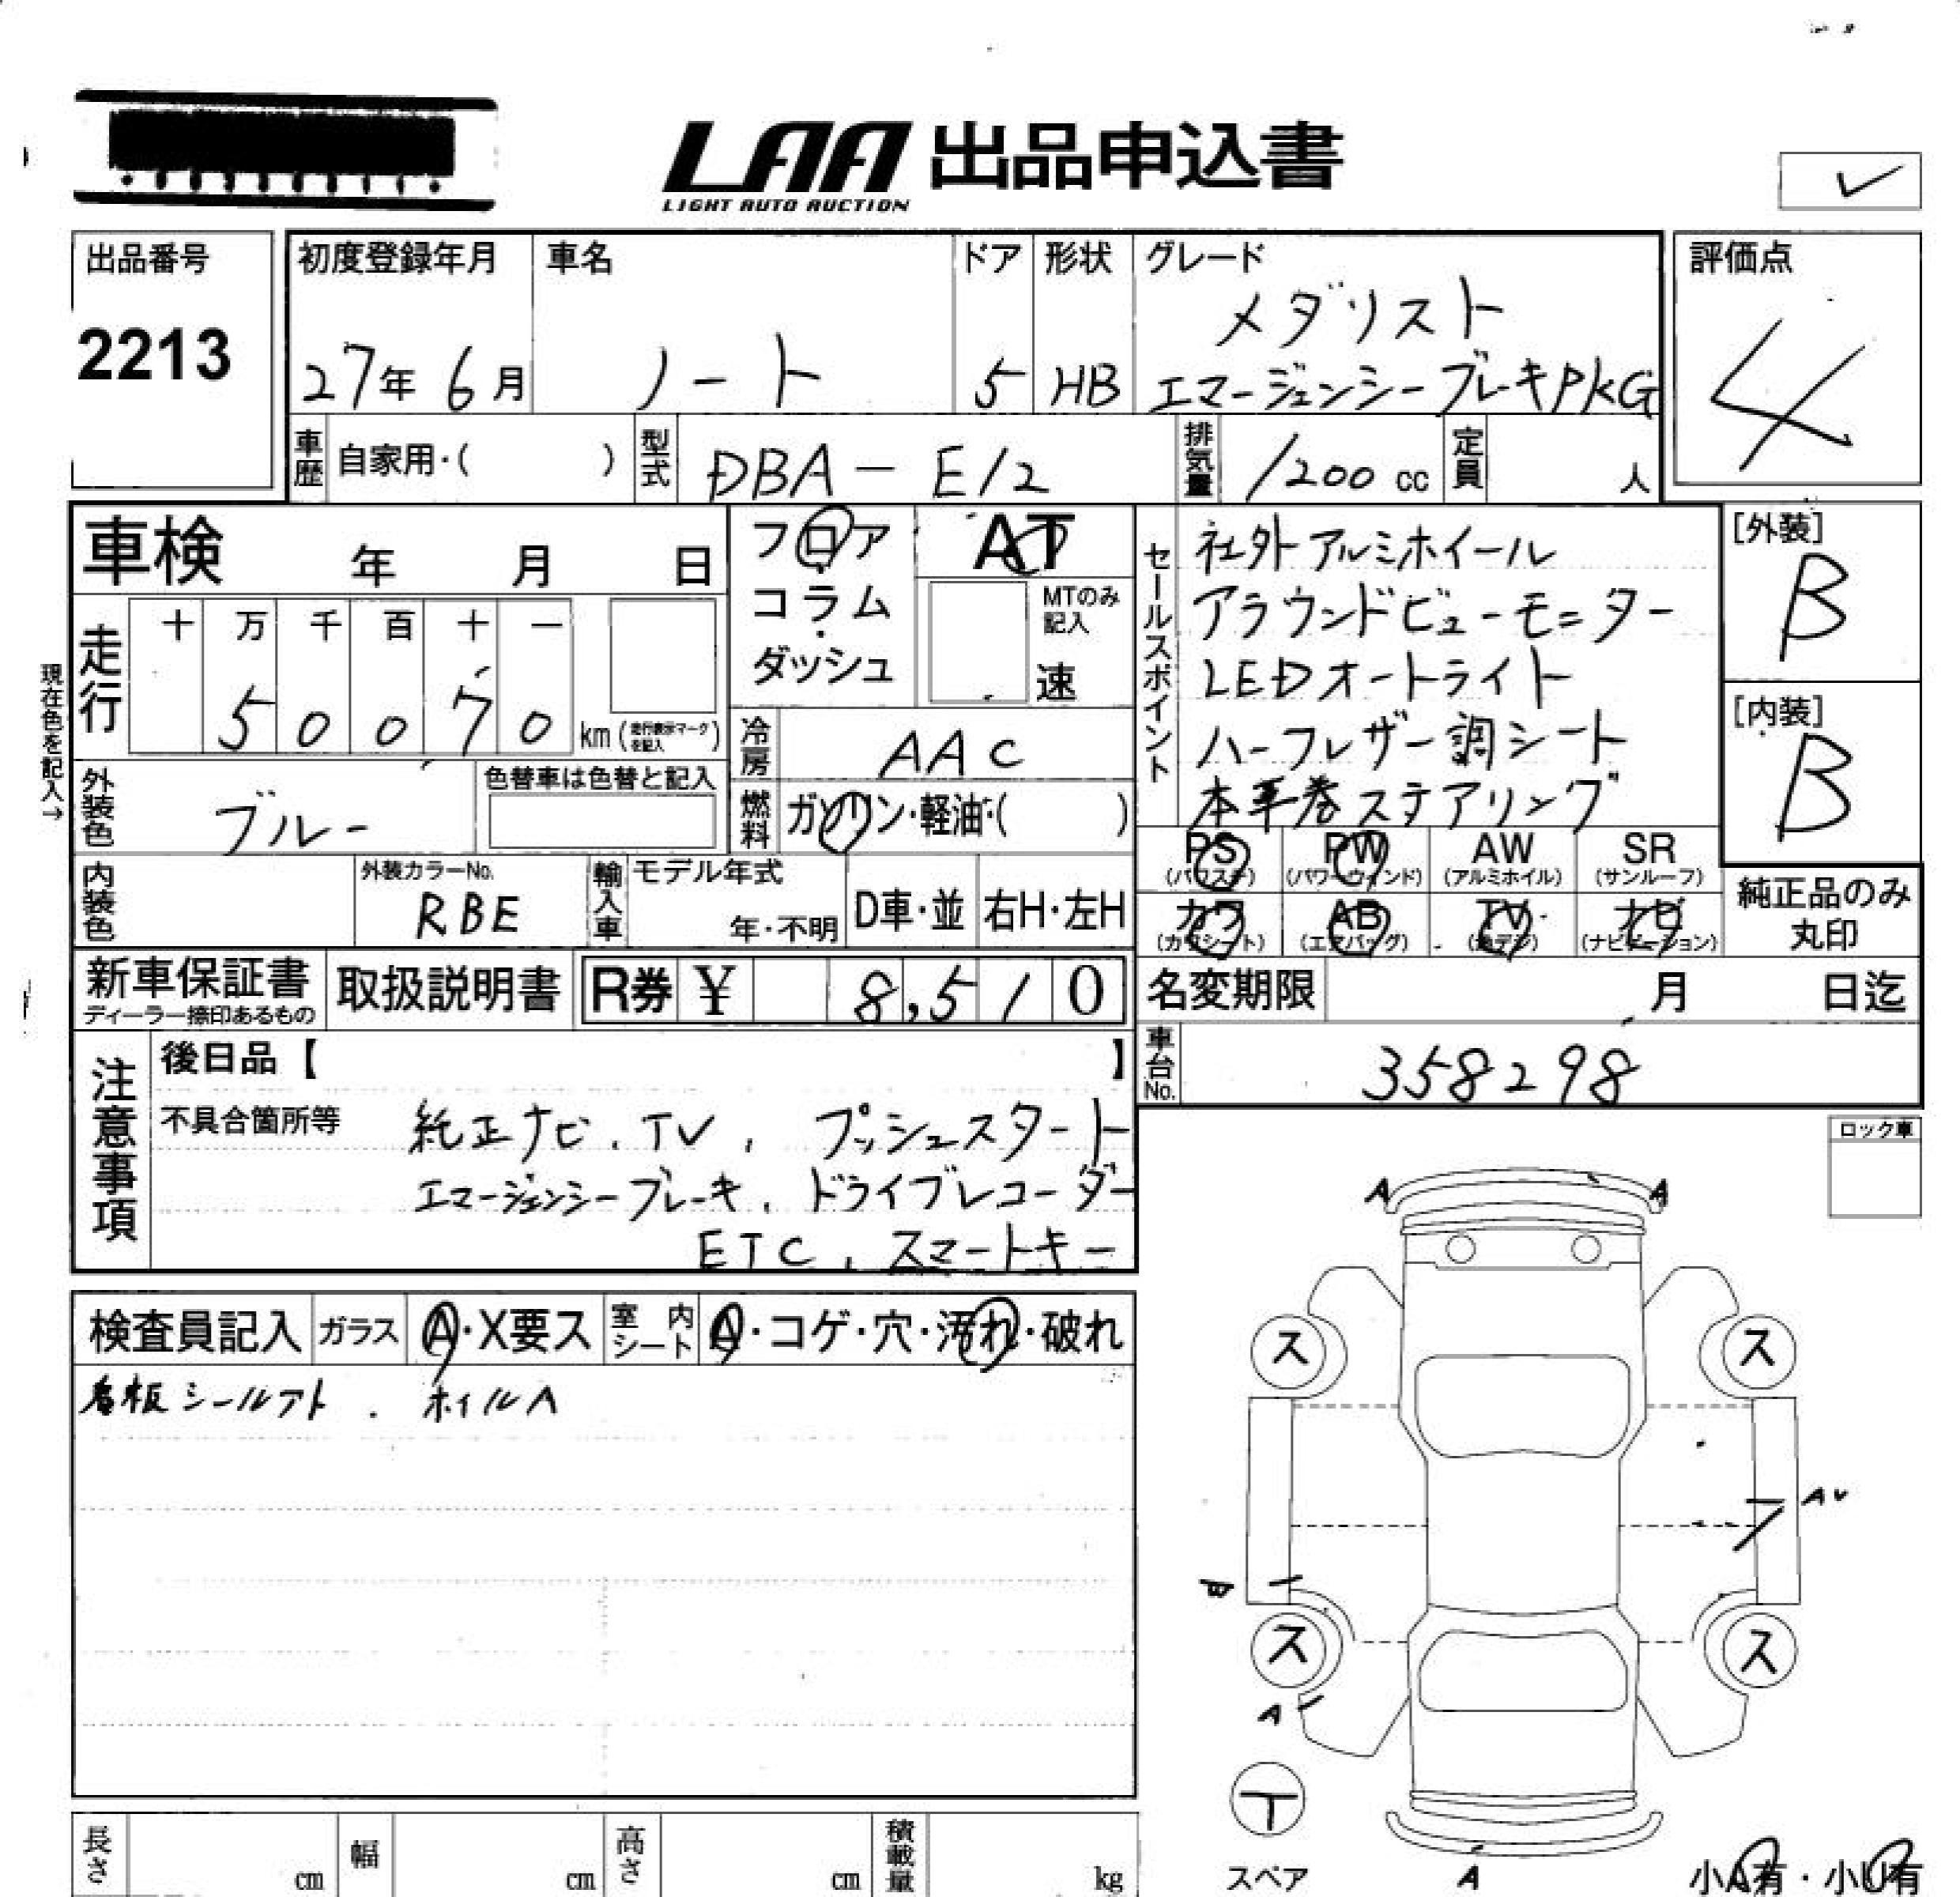 LAA 出品申込書
LIGHT AUTO AUCTION
✓
出品番号
2213
初度登録年月
27年 6月
車名
ノート
ドア
5
形状
HB
グレード
メダリスト
エマージェンシーブレーキPKG
評価点
4
車歴
自家用・( )
型式
DBA-E12
排気量
1200 cc
定員
人
車検 年 月 日
フロア
・
コラム
・
ダッシュ
AT
MTのみ
記入
速
現在色を記入→
走行
十 万 千 百 十 一
5 0 0 7 0 km (走行表示マークを記入)
冷房
AAC
外装色
ブルー
色替車は色替と記入
燃料
ガソリン・軽油・( )
内装色
外装カラーNo.
RBE
輸入車
モデル年式
年・不明
D車・並
右H・左H
セールスポイント
社外アルミホイール
アラウンドビューモニター
LEDオートライト
ハーフレザー調シート
本革巻ステアリング
[外装]
B
[内装]
B
PS
(パワステ)
PW
(パワーウィンド)
AW
(アルミホイル)
SR
(サンルーフ)
カワ
(カワシート)
AB
(エアバッグ)
TV
(地デジ)
ナビ
(ナビゲーション)
純正品のみ
丸印
新車保証書
ディーラー捺印あるもの
取扱説明書
R券 ¥ 8,510
名変期限 月 日迄
車台No.
358298
注意事項
後日品【 】
不具合箇所等
純正ナビ、TV、プッシュスタート
エマージェンシーブレーキ、ドライブレコーダー
ETC、スマートキー
ロック車
検査員記入
ガラス
A・X要ス
室内
シート
A・コゲ・穴・汚れ・破れ
看板シールアト . ホイルA
A
A
ス
ス
AU
ス
ス
A
T
スペア
A
小A有・小U有
長さ
cm
幅
cm
高さ
cm
積載量
kg